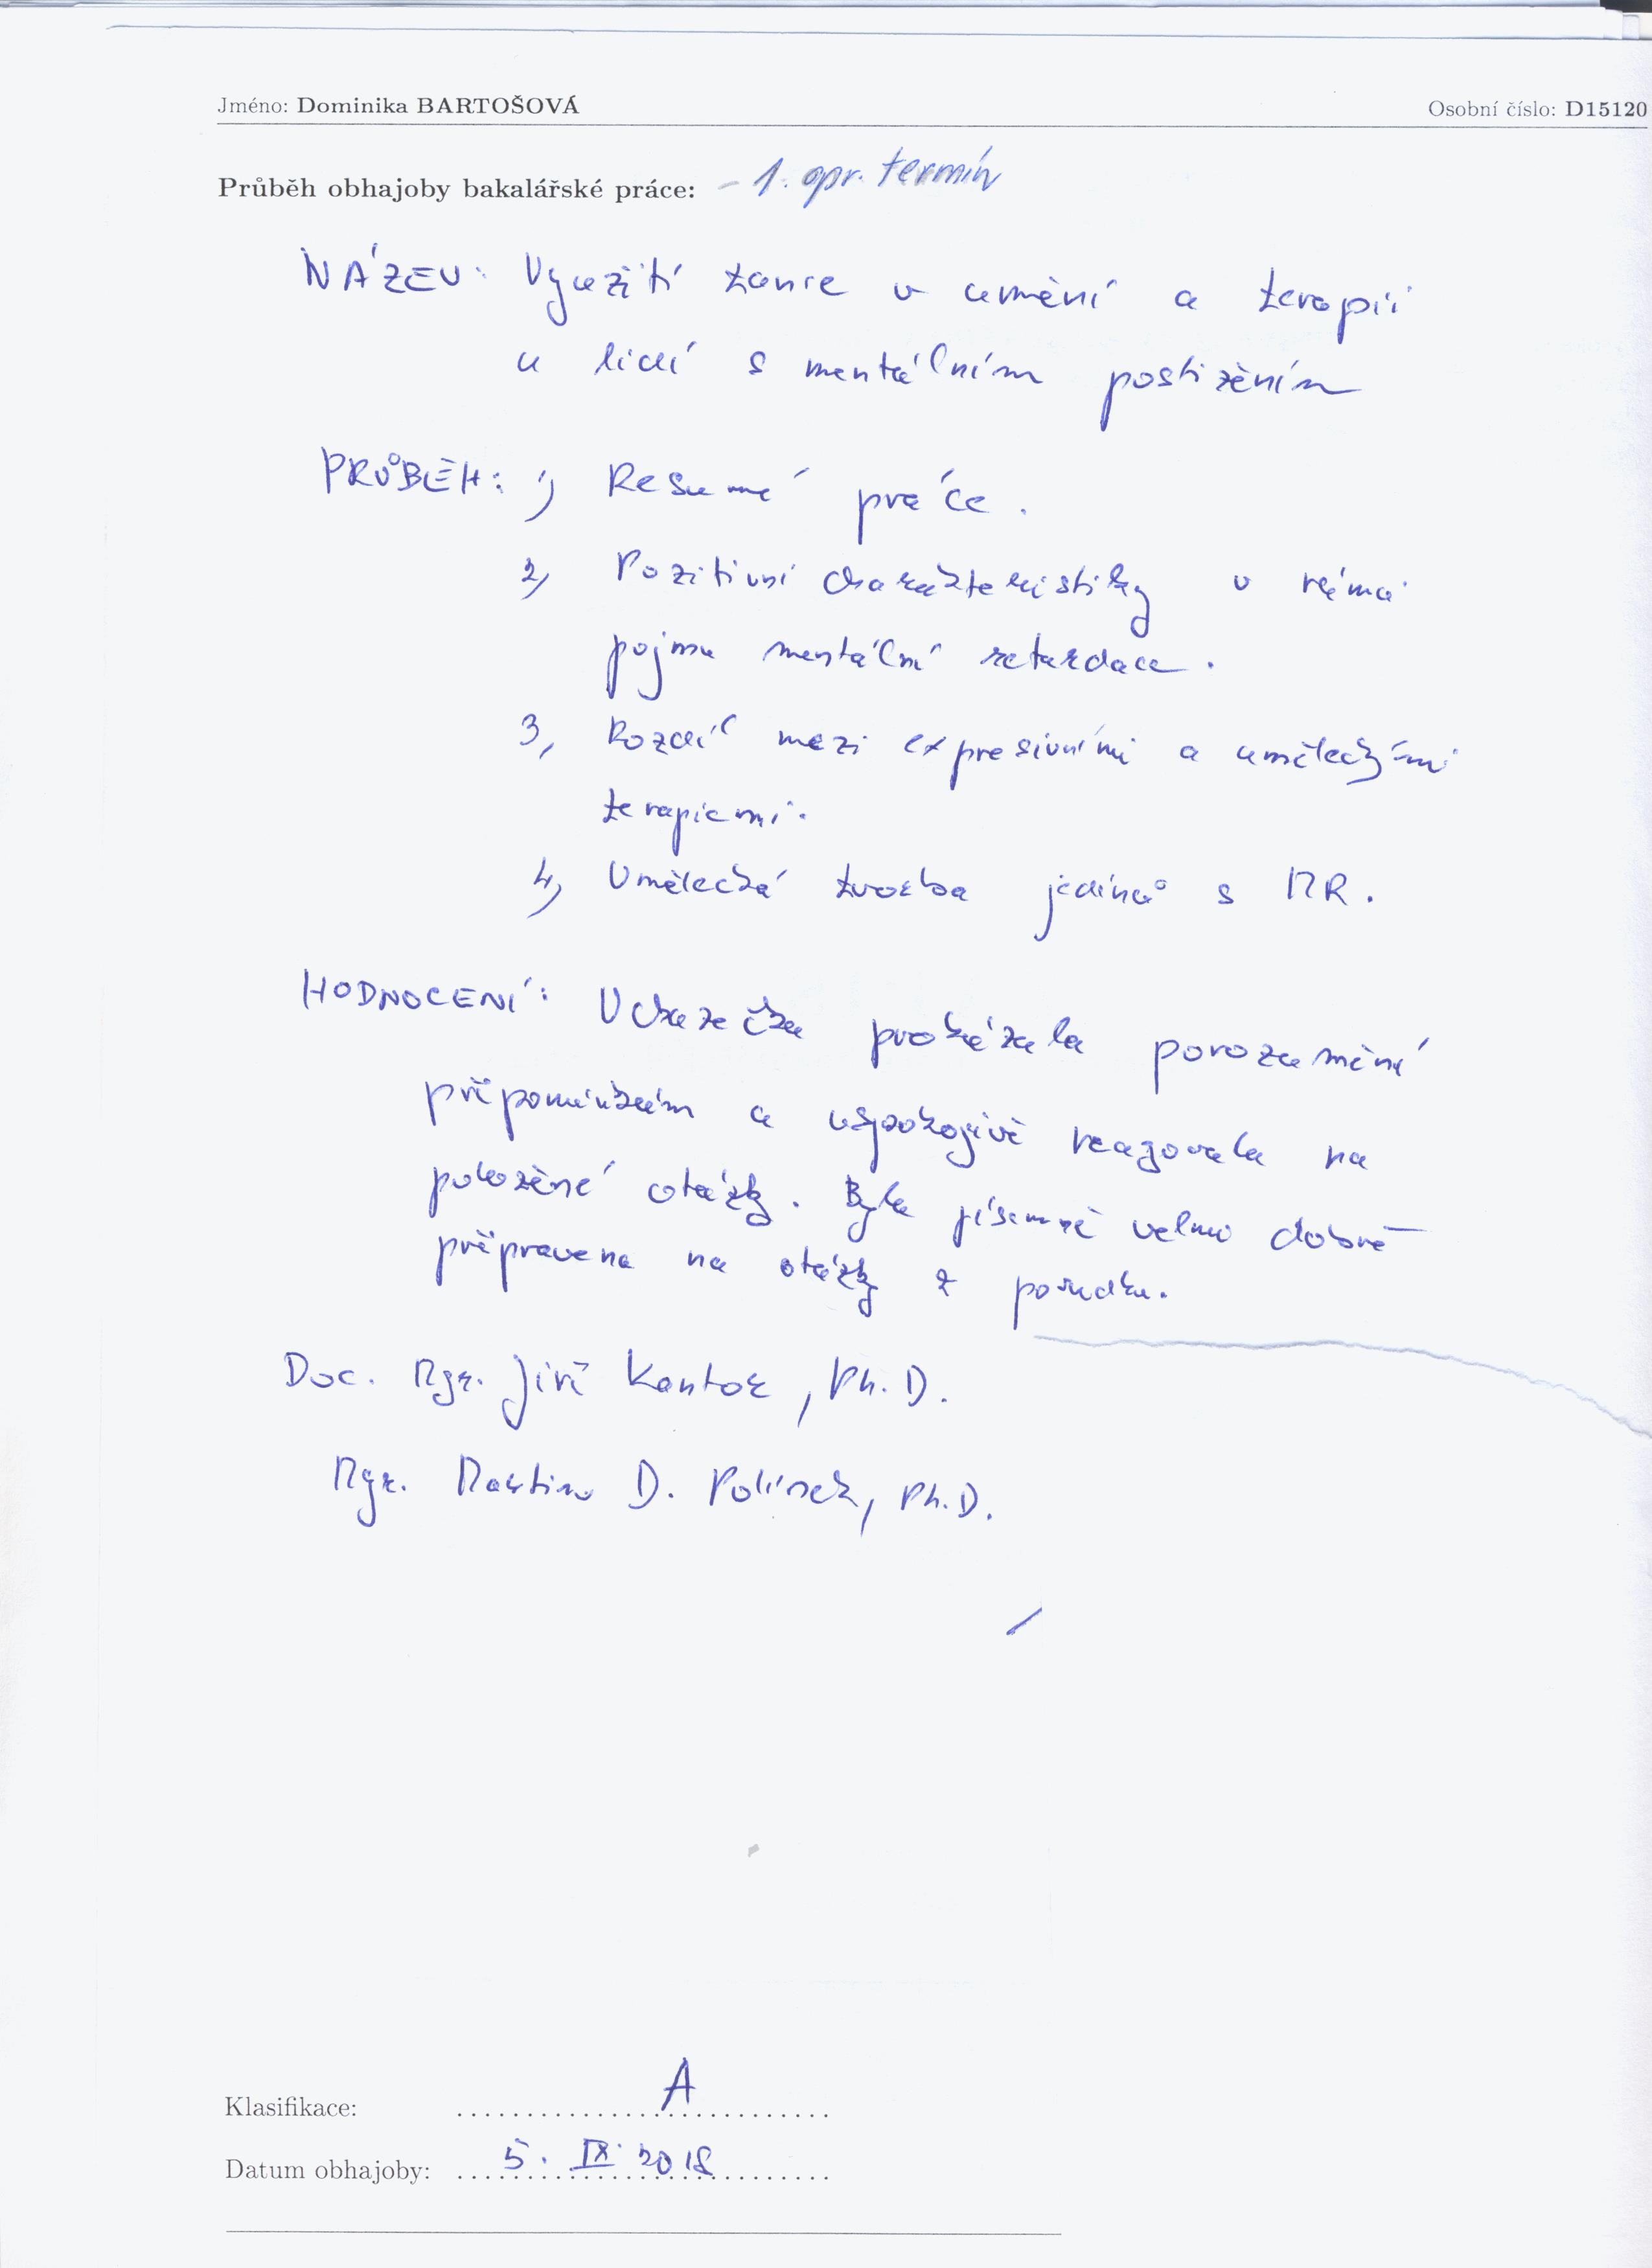 Jméno: Dominika BARTOŠOVÁ
Osobní číslo: D15120
Průběh obhajoby bakalářské práce: - 1. opr. termín
NÁZEV: Využití tance v umění a terapii
u lidí s mentálním postižěním
PRŮBĚH: 1) Resumé práce.
2) Pozitivní charakteristiky v rámci
pojmu mentální retardace.
3, Rozdíl mezi expresivními a uměleckými
terapiemi.
4) Umělecká tvorba jedinců s MR.
HODNOCENÍ: Uchazečka prokázala porozumění
připomínkám a uspokojivě reagovala na
položěné otázky. Byla písemně velmi dobře
připravena na otázky z posudku.
Doc. Mgr. Jiří Kantor, Ph.D.
Mgr. Martin D. Polínek, Ph.D.
Klasifikace: A
Datum obhajoby: 5. IX. 2018